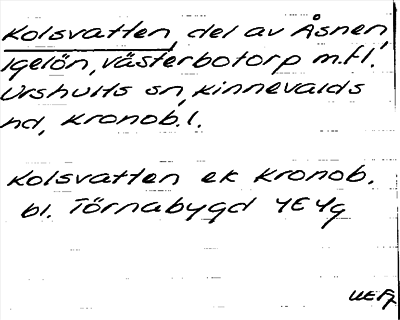 Kolsvatten, del av Åsnen,
Igelön, Västerbotorp m.fl.
Urshults sn, Kinnevalds
hd, Kronob.l.
Kolsvatten ek Kronob.
bl. Törnabygd 4E4g